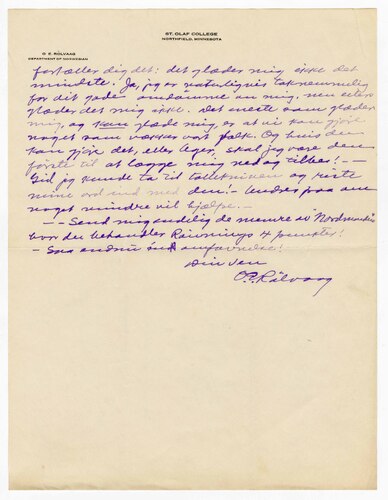 ST. OLAF COLLEGE
NORTHFIELD, MINNESOTA
O. E. RÖLVAAG
DEPARTMENT OF NORWEGIAN
fortæller dig det: det glæder mig ikke det
mindste. Ja, jeg er naturligvis taknemmelig
for dit gode omdømme om mig, men ellers
glæder det mig ikke. Det eneste som glæder
mig, og kan glæde mig, er at vi kan gjøre
noget som vækker vort folk. Og hvis du
kan gjøre det, eller leger, skal jeg være den
første til at lægge mig ned og tilbe! —
Gid jeg kunde ta til
mine ord ind med den! paa om
noget mindre vil hjælpe.
— — Send mig endelig de numre av
hvor du behandler 4 punkter!
— Saa
Din ven
O. E. Rölvaag